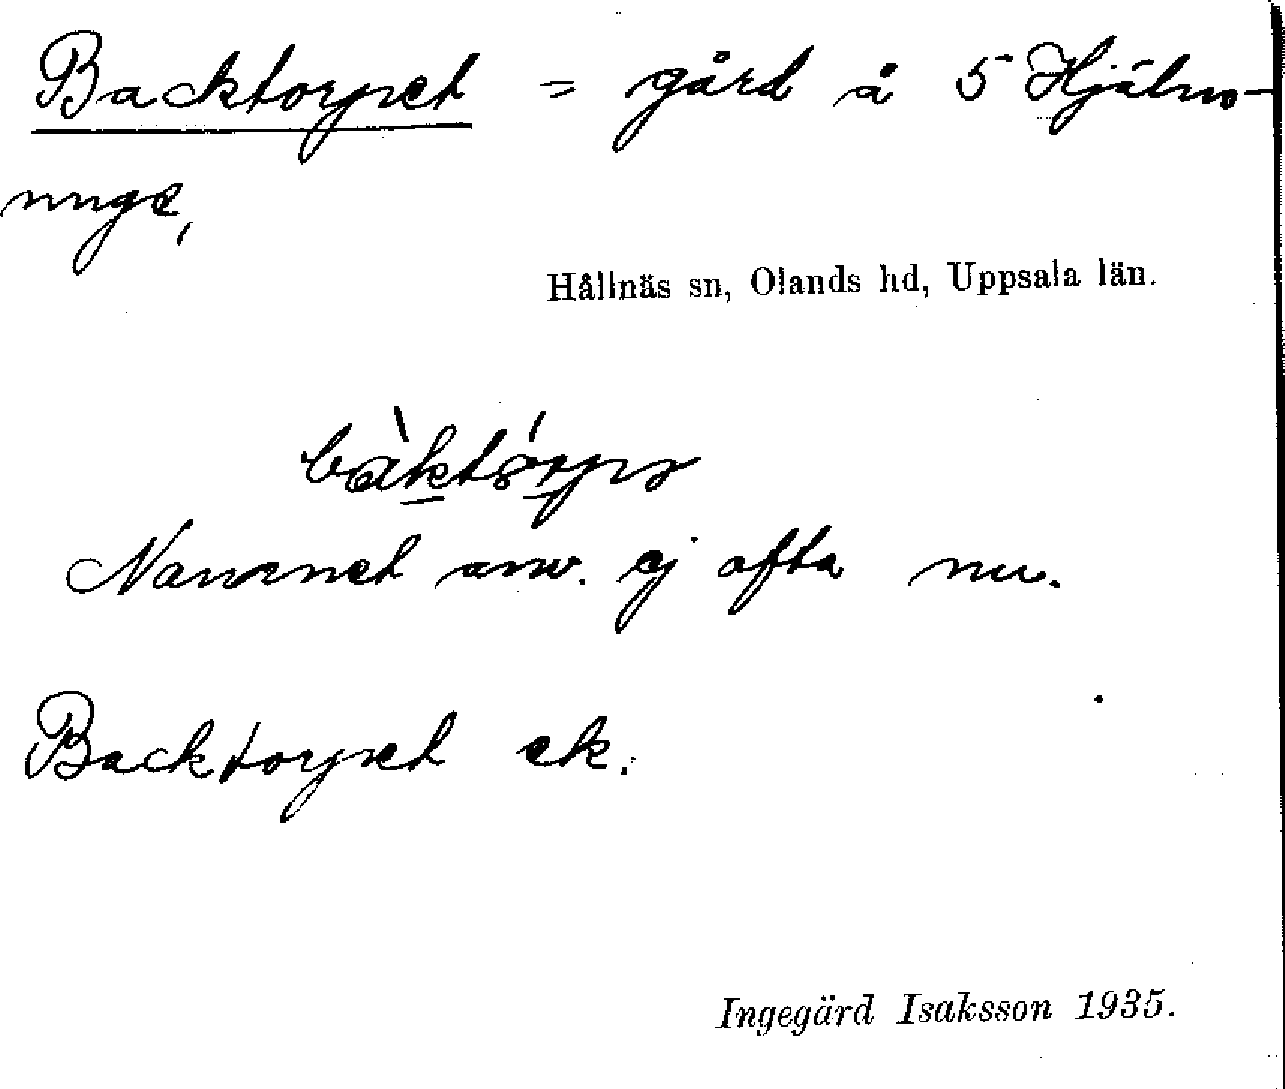 Backtorpet = gård å 5 Hjälm-
unge,
Hållnäs sn, Olands hd, Uppsala län.
bàktórpə
Namnet anv. ej ofta nu.
Backtorpet ek.
Ingegärd Isaksson 1935.